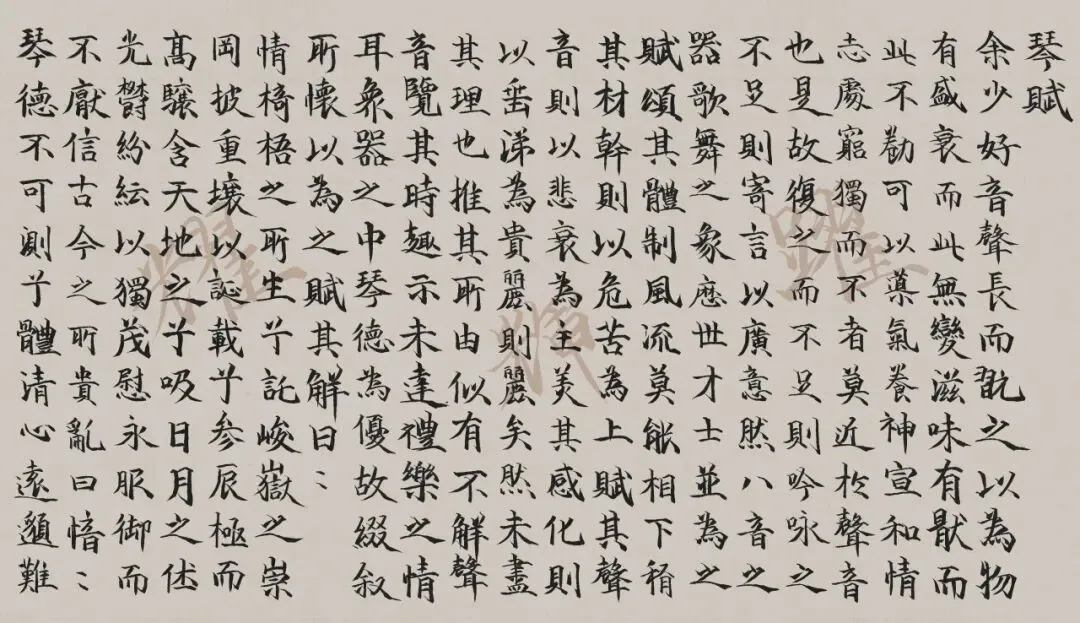 琴賦
余少好音聲長而翫之以為物
有盛衰而此無變滋味有猒而
此不勌可以氣養神宣和情
志處窮獨而不者莫近於聲音
也是故復之而不足則吟咏之
不足則寄言以廣意然八音之
器歌舞之象歷世才士並為之
賦頌其體制風流莫能相下稍
其材幹則以危苦為上賦其聲
音則以悲哀為主美其感化則
以垂涕為貴麗則麗矣然未盡
其理也推其所由似有不解聲
音覽其時趣示未達禮樂之情
耳衆器之中琴德為優故綴叙
所懷以為之賦其解曰:
情椅梧之所生兮託峻嶽之崇
岡披重壤以誕載兮參辰極而
高驤含天地之兮吸日月之休
光鬱紛紜以獨茂慰永服御而
不猒信古今之所貴亂曰愔:
琴德不可測兮體清心遠邈難